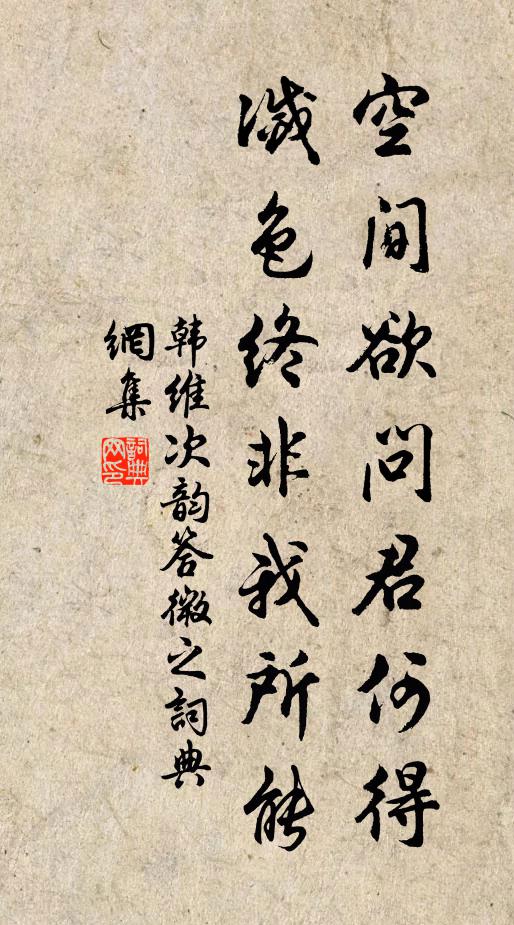 空间欲问君何得
灭色终非我所能
韩维次韵答微之词典
網集
詞典網印